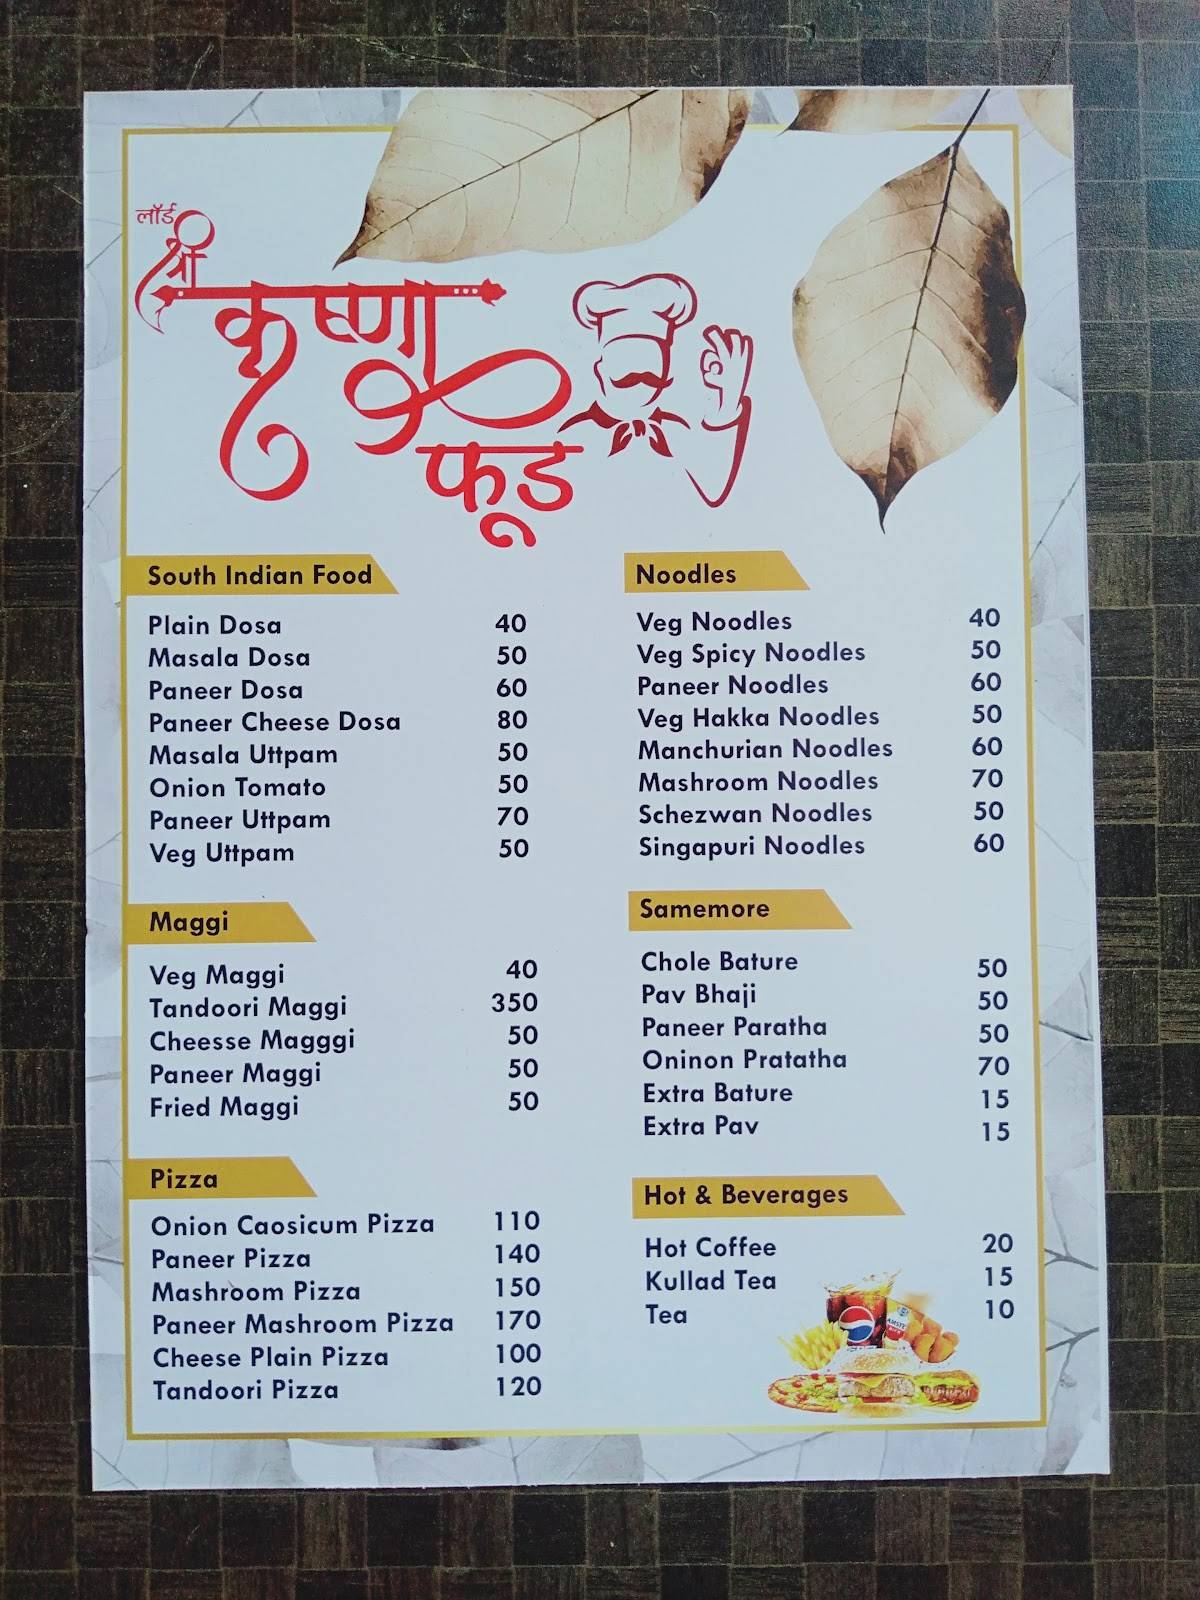 लॉर्ड
श्री
कृष्णा
फूड
South Indian Food
Plain Dosa 40
Masala Dosa 50
Paneer Dosa 60
Paneer Cheese Dosa 80
Masala Uttpam 50
Onion Tomato 50
Paneer Uttpam 70
Veg Uttpam 50
Maggi
Veg Maggi 40
Tandoori Maggi 350
Cheesse Magggi 50
Paneer Maggi 50
Fried Maggi 50
Pizza
Onion Caosicum Pizza 110
Paneer Pizza 140
Mashroom Pizza 150
Paneer Mashroom Pizza 170
Cheese Plain Pizza 100
Tandoori Pizza 120
Noodles
Veg Noodles 40
Veg Spicy Noodles 50
Paneer Noodles 60
Veg Hakka Noodles 50
Manchurian Noodles 60
Mashroom Noodles 70
Schezwan Noodles 50
Singapuri Noodles 60
Samemore
Chole Bature 50
Pav Bhaji 50
Paneer Paratha 50
Oninon Pratatha 70
Extra Bature 15
Extra Pav 15
Hot & Beverages
Hot Coffee 20
Kullad Tea 15
Tea 10